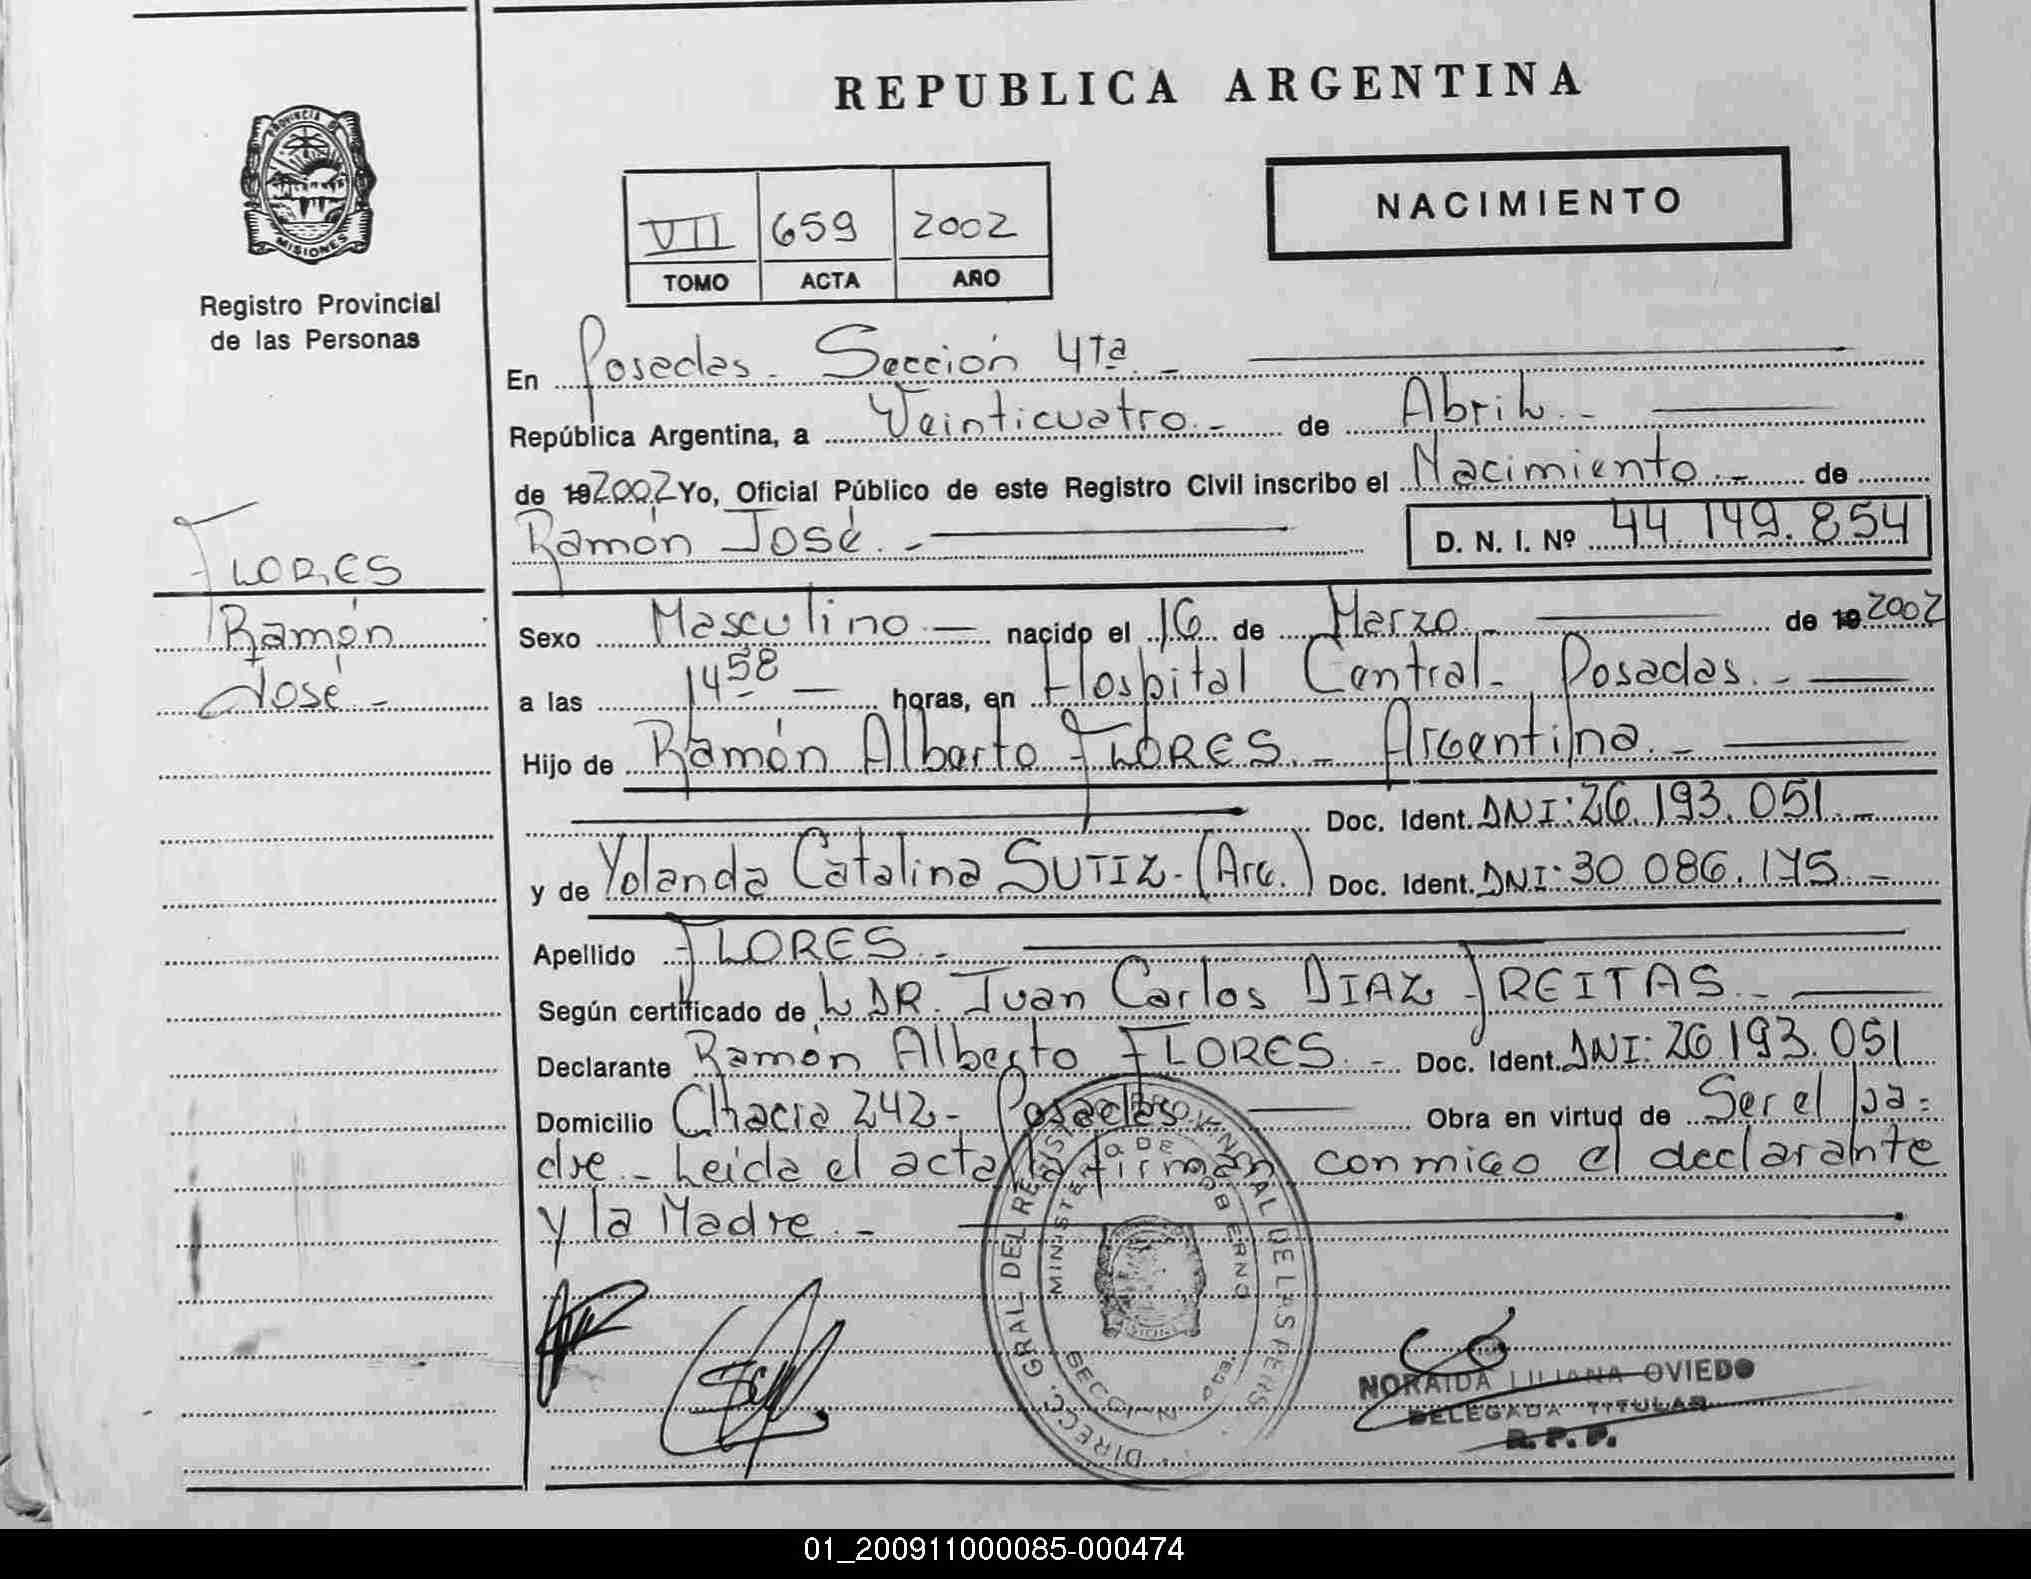 REPUBLICA ARGENTINA
PROVINCIA DE
MISIONES
Registro Provincial
de las Personas
NACIMIENTO
VII 659 2002
TOMO ACTA AÑO
En Posadas. Sección 4ta.-
República Argentina, a Veinticuatro.- de Abril.-
de 19 2002 Yo, Oficial Público de este Registro Civil inscribo el Nacimiento.- de
Ramón José.- D. N. I. Nº 44.149.854
FLORES
Ramón
José.-
Sexo Masculino - nacido el 16 de Marzo.- de 19 2002
a las 14 58 - horas, en Hospital Central- Posadas.-
Hijo de Ramón Alberto FLORES.- Argentina.-
Doc. Ident. DNI: 26.193.051.-
y de Yolanda Catalina SUTIL.(Arg.) Doc. Ident. DNI: 30.086.175.-
Apellido FLORES.-
Según certificado de L DR. Juan Carlos DIAZ FREITAS.-
Declarante Ramón Alberto FLORES.- Doc. Ident. DNI: 26.193.051
Domicilio Chacra 242- Posadas Obra en virtud de Ser el pa-
dre.- Leida el acta la firman conmigo el declarante
y la Madre.-
DIRECC. GRAL DEL REGISTRO PROVINCIAL DE LAS PERS
MINISTERIO DE GOBIERNO
SECCION 4ta.
NORAIDA LILIANA OVIEDO
DELEGADA TITULAR
R.P.P.
01_200911000085-000474